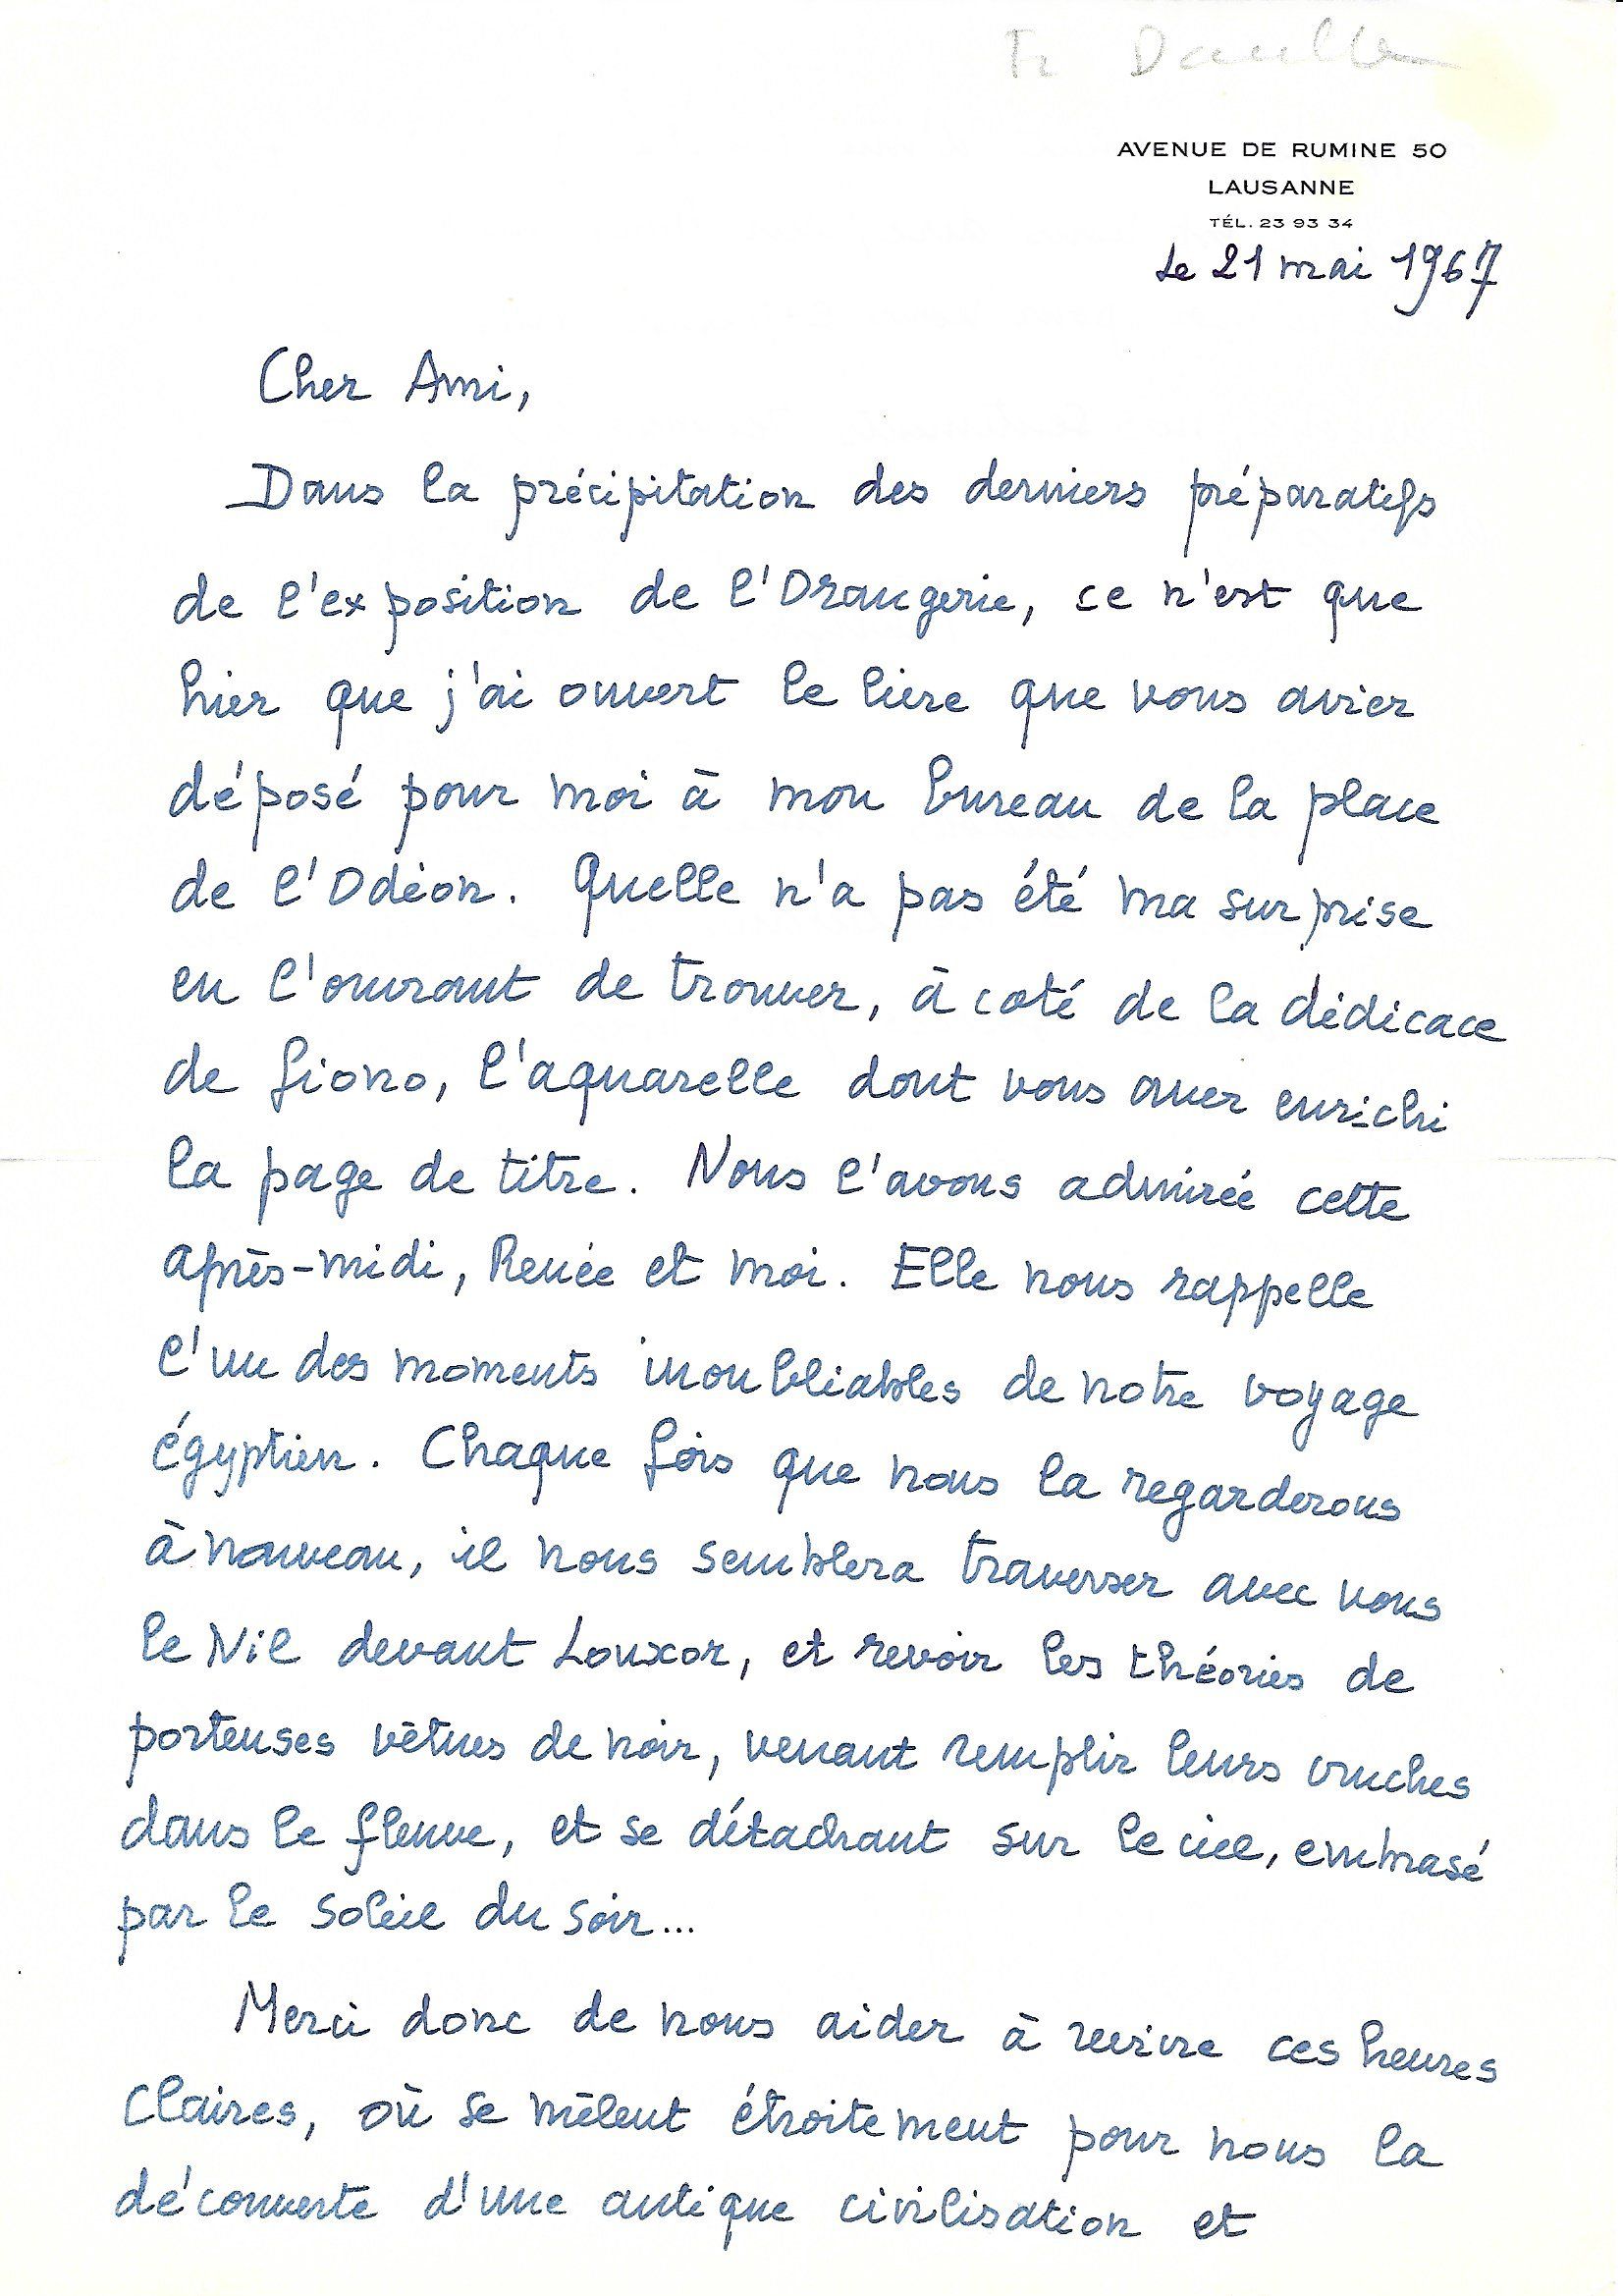 Fr Daulte
AVENUE DE RUMINE 50
LAUSANNE
TÉL. 23 93 34
Le 21 mai 1967
Cher Ami,
Dans la précipitation des derniers préparatifs
de l'exposition de l'Orangerie, ce n'est que
hier que j'ai ouvert le livre que vous aviez
déposé pour moi à mon bureau de la place
de l'Odéon. Quelle n'a pas été ma surprise
en l'ouvrant de trouver, à coté de la dédicace
de Giono, l'aquarelle dont vous avez enrichi
la page de titre. Nous l'avons admirée cette
après-midi, Renée et moi. Elle nous rappelle
l'un des moments inoubliables de notre voyage
égyptien. Chaque fois que nous la regarderons
à nouveau, il nous semblera traverser avec vous
le Nil devant Louxor, et revoir les théories de
porteuses vêtues de noir, venant remplir leurs cruches
dans le fleuve, et se détachant sur le ciel, embrasé
par le soleil du soir...
Merci donc de nous aider à revivre ces heures
claires, où se mêlent étroitement pour nous la
découverte d'une antique civilisation et